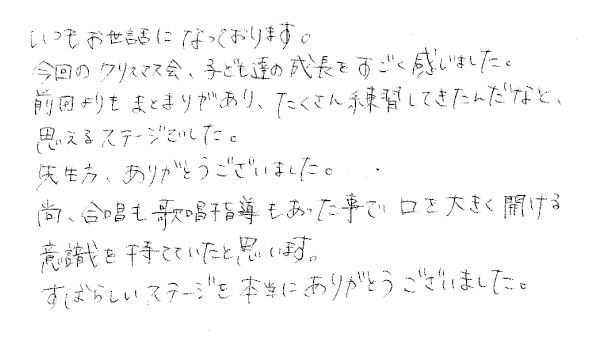 いつもお世話になっております。
今回のクリスマス会、子ども達の成長をすごく感じました。
前回よりもまとまりがあり、たくさん練習してきたんだなと、
思えるステージでした。
先生方、ありがとうございました。
尚、合唱も歌唱指導もあった事で口を大きく開ける
意識を持てていたと思います。
すばらしいステージを本当にありがとうございました。